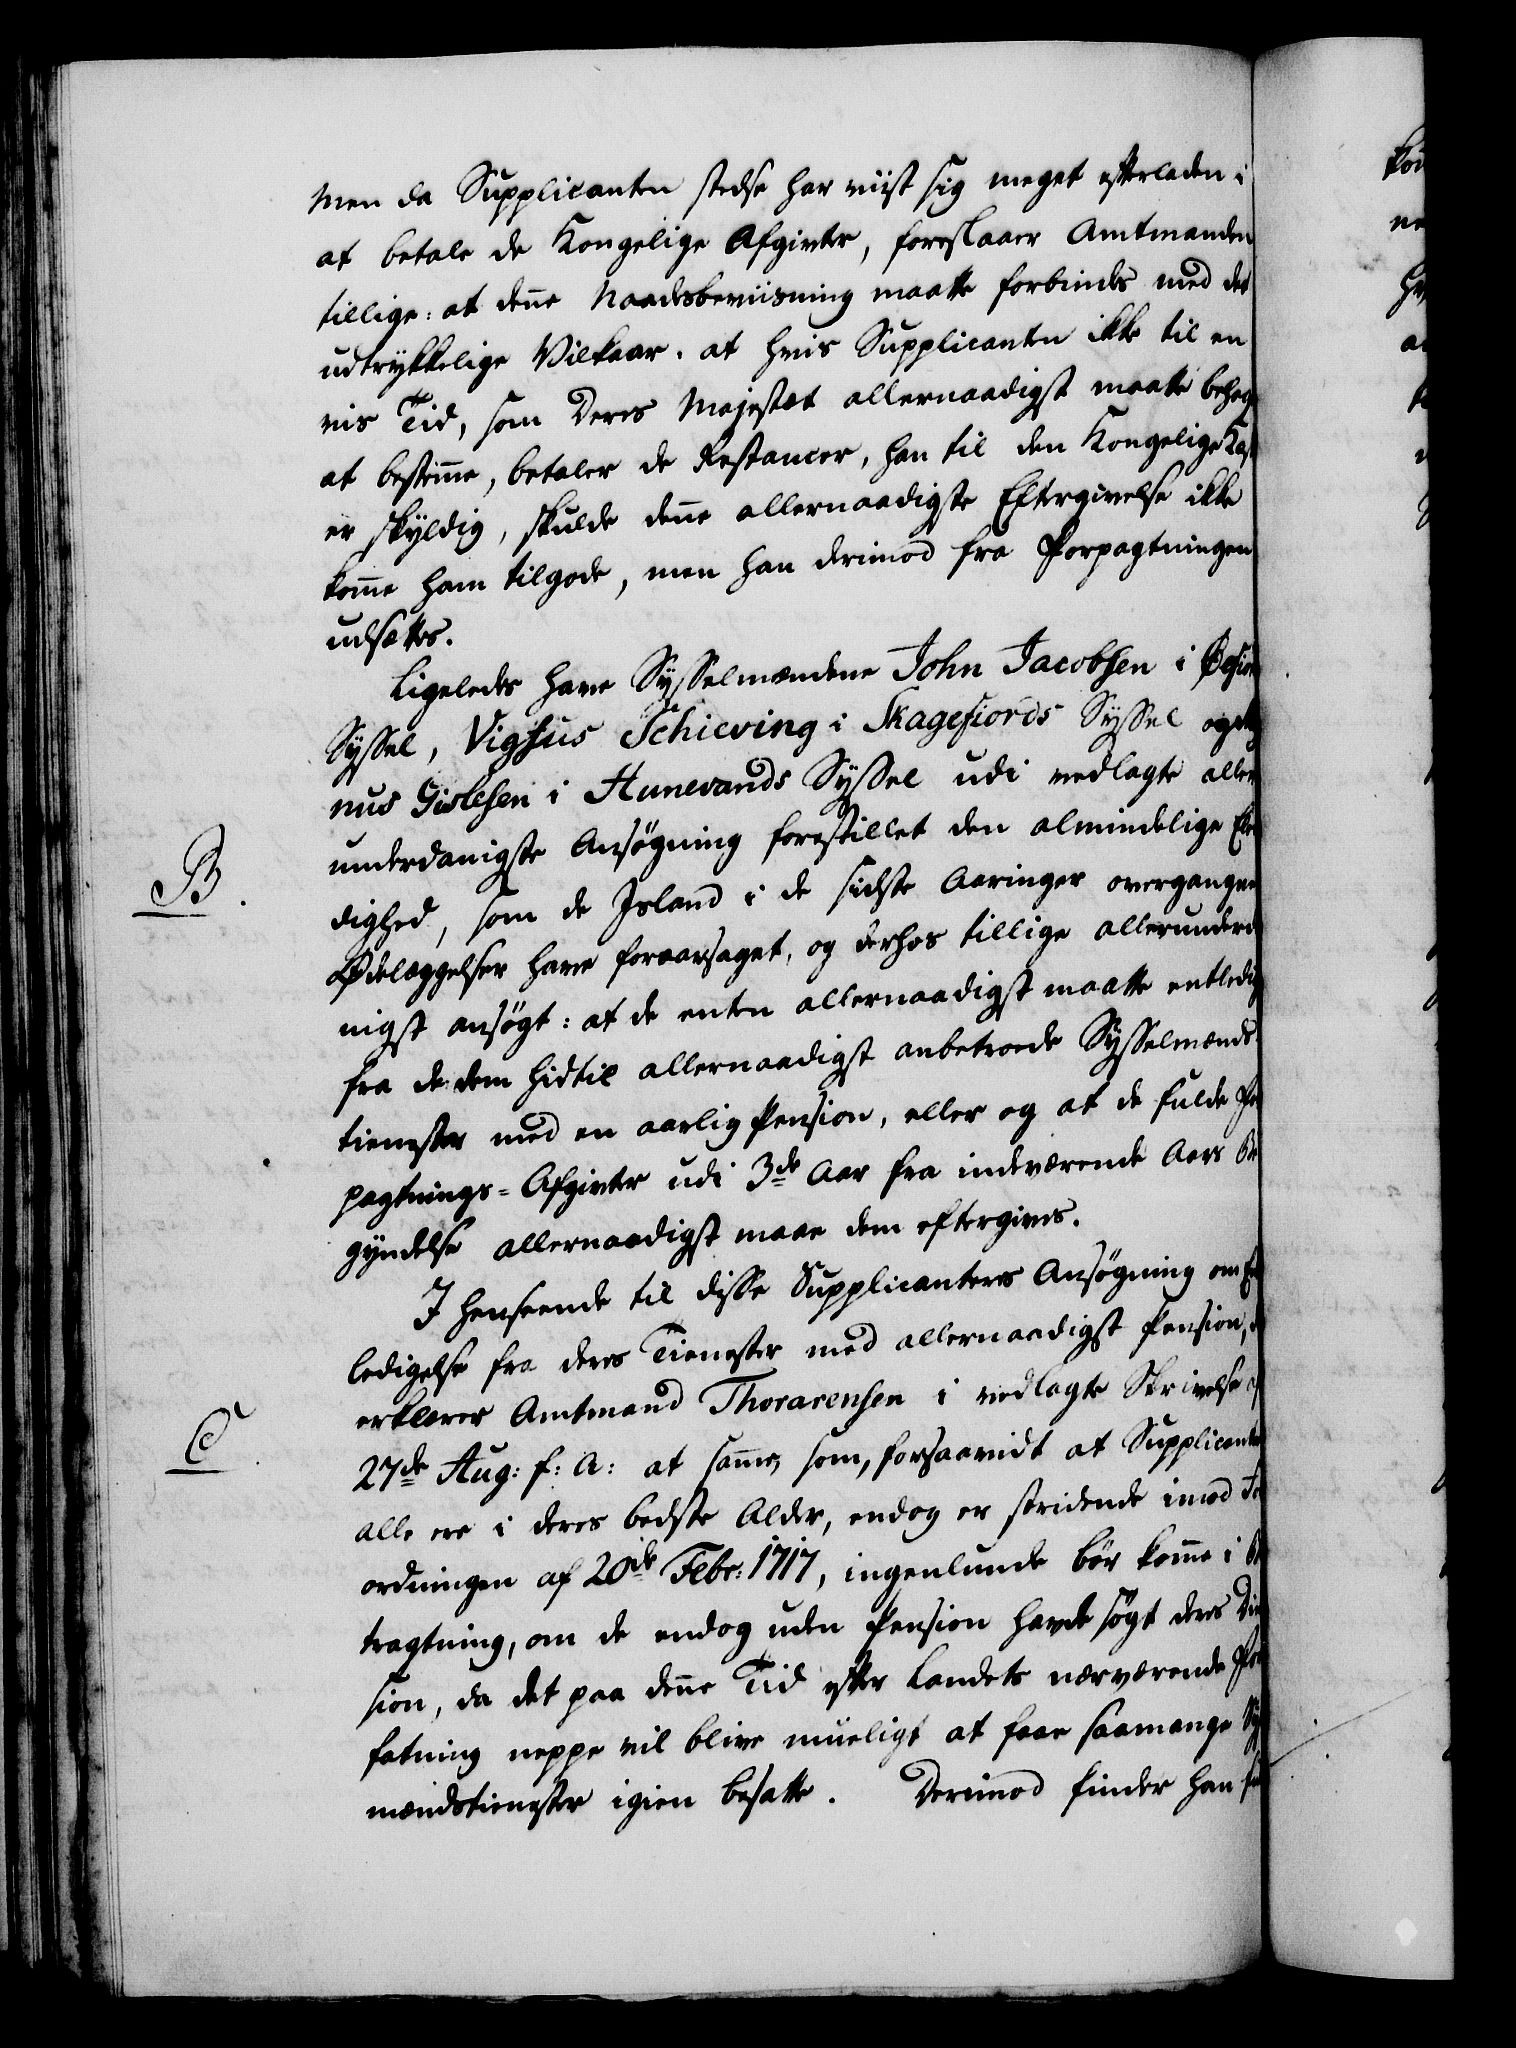 Men da Supplicanten stedse har viist sig meget efterladen i
at betale de Kongelige Afgivter, foreslaaer Amtmanden
tillige: at denne Naadesbeviisning maatte forbindes med det
udtrykkelige Vilkaar. at hvis Supplicanten ikke til en
vis Tid, som Deres Majestæt allernaadigst maatte behag
at bestemme, betaler de Restancer, han til den Kongelige Kas
er skyldig, skulde denne allernaadigste Eftergivelse ikke
komme ham tilgode, men han derimod fra Forpagtningen
udsættes.
Ligeledes have Sysselmændene John Jacobsen i Øefior
Syssel, Vigfus Schieving i Skagefiords Syssel og
nus Gislesen i Hunevands Syssel udi vedlagte aller
B.
underdanigste Ansøgning forestillet den almindelige Elen
dighed, som de Island i de sidste Aaringer overgangne
Ødelæggelser have foraarsaget, og derhos tillige allerunderd
nigst ansøgt: at de enten allernaadigst maatte entledig
fra de dem hidtil allernaadigst anbetroede Sysselmænds
tienester med en aarlig Pension, eller og at de fulde For
pagtnings-Afgivter udi 3de Aar fra indeværende Aars Be
gyndelse allernaadigst maae dem eftergives.
I Henseende til disse Supplicanters Ansøgning om Ent
ledigelse fra deres Tienester med allernaadigst Pension,
erklærer Amtmand Thorarensen i vedlagte Skrivelse af
C.
27de Aug: f: A: at samme, som, forsaavidt at Supplicanter
alle ere i deres bedste Alder, endog er stridende imod For
ordningen af 20de Febr: 1717, ingenlunde bør komme i Be
tragtning, om de endog uden Pension havde søgt deres Dim
sion, da det paa denne Tid efter Landets nærværende For
fatning neppe vil blive mueligt at faae saamange Sys
mændstienester igien besatte. Derimod finder han